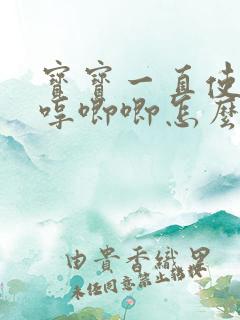 寶寶一直使
哼唧唧怎麼
由貴香織里
未任同意禁止轉載